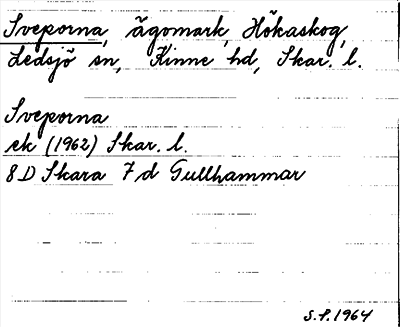 Sveporna, ägomark, Hökaskog,
Ledsjö sn, Kinne hd, Skar. l.
Sveporna
ek (1962) Skar. l.
8D Skara 7d Gullhammar
S.P. 1964